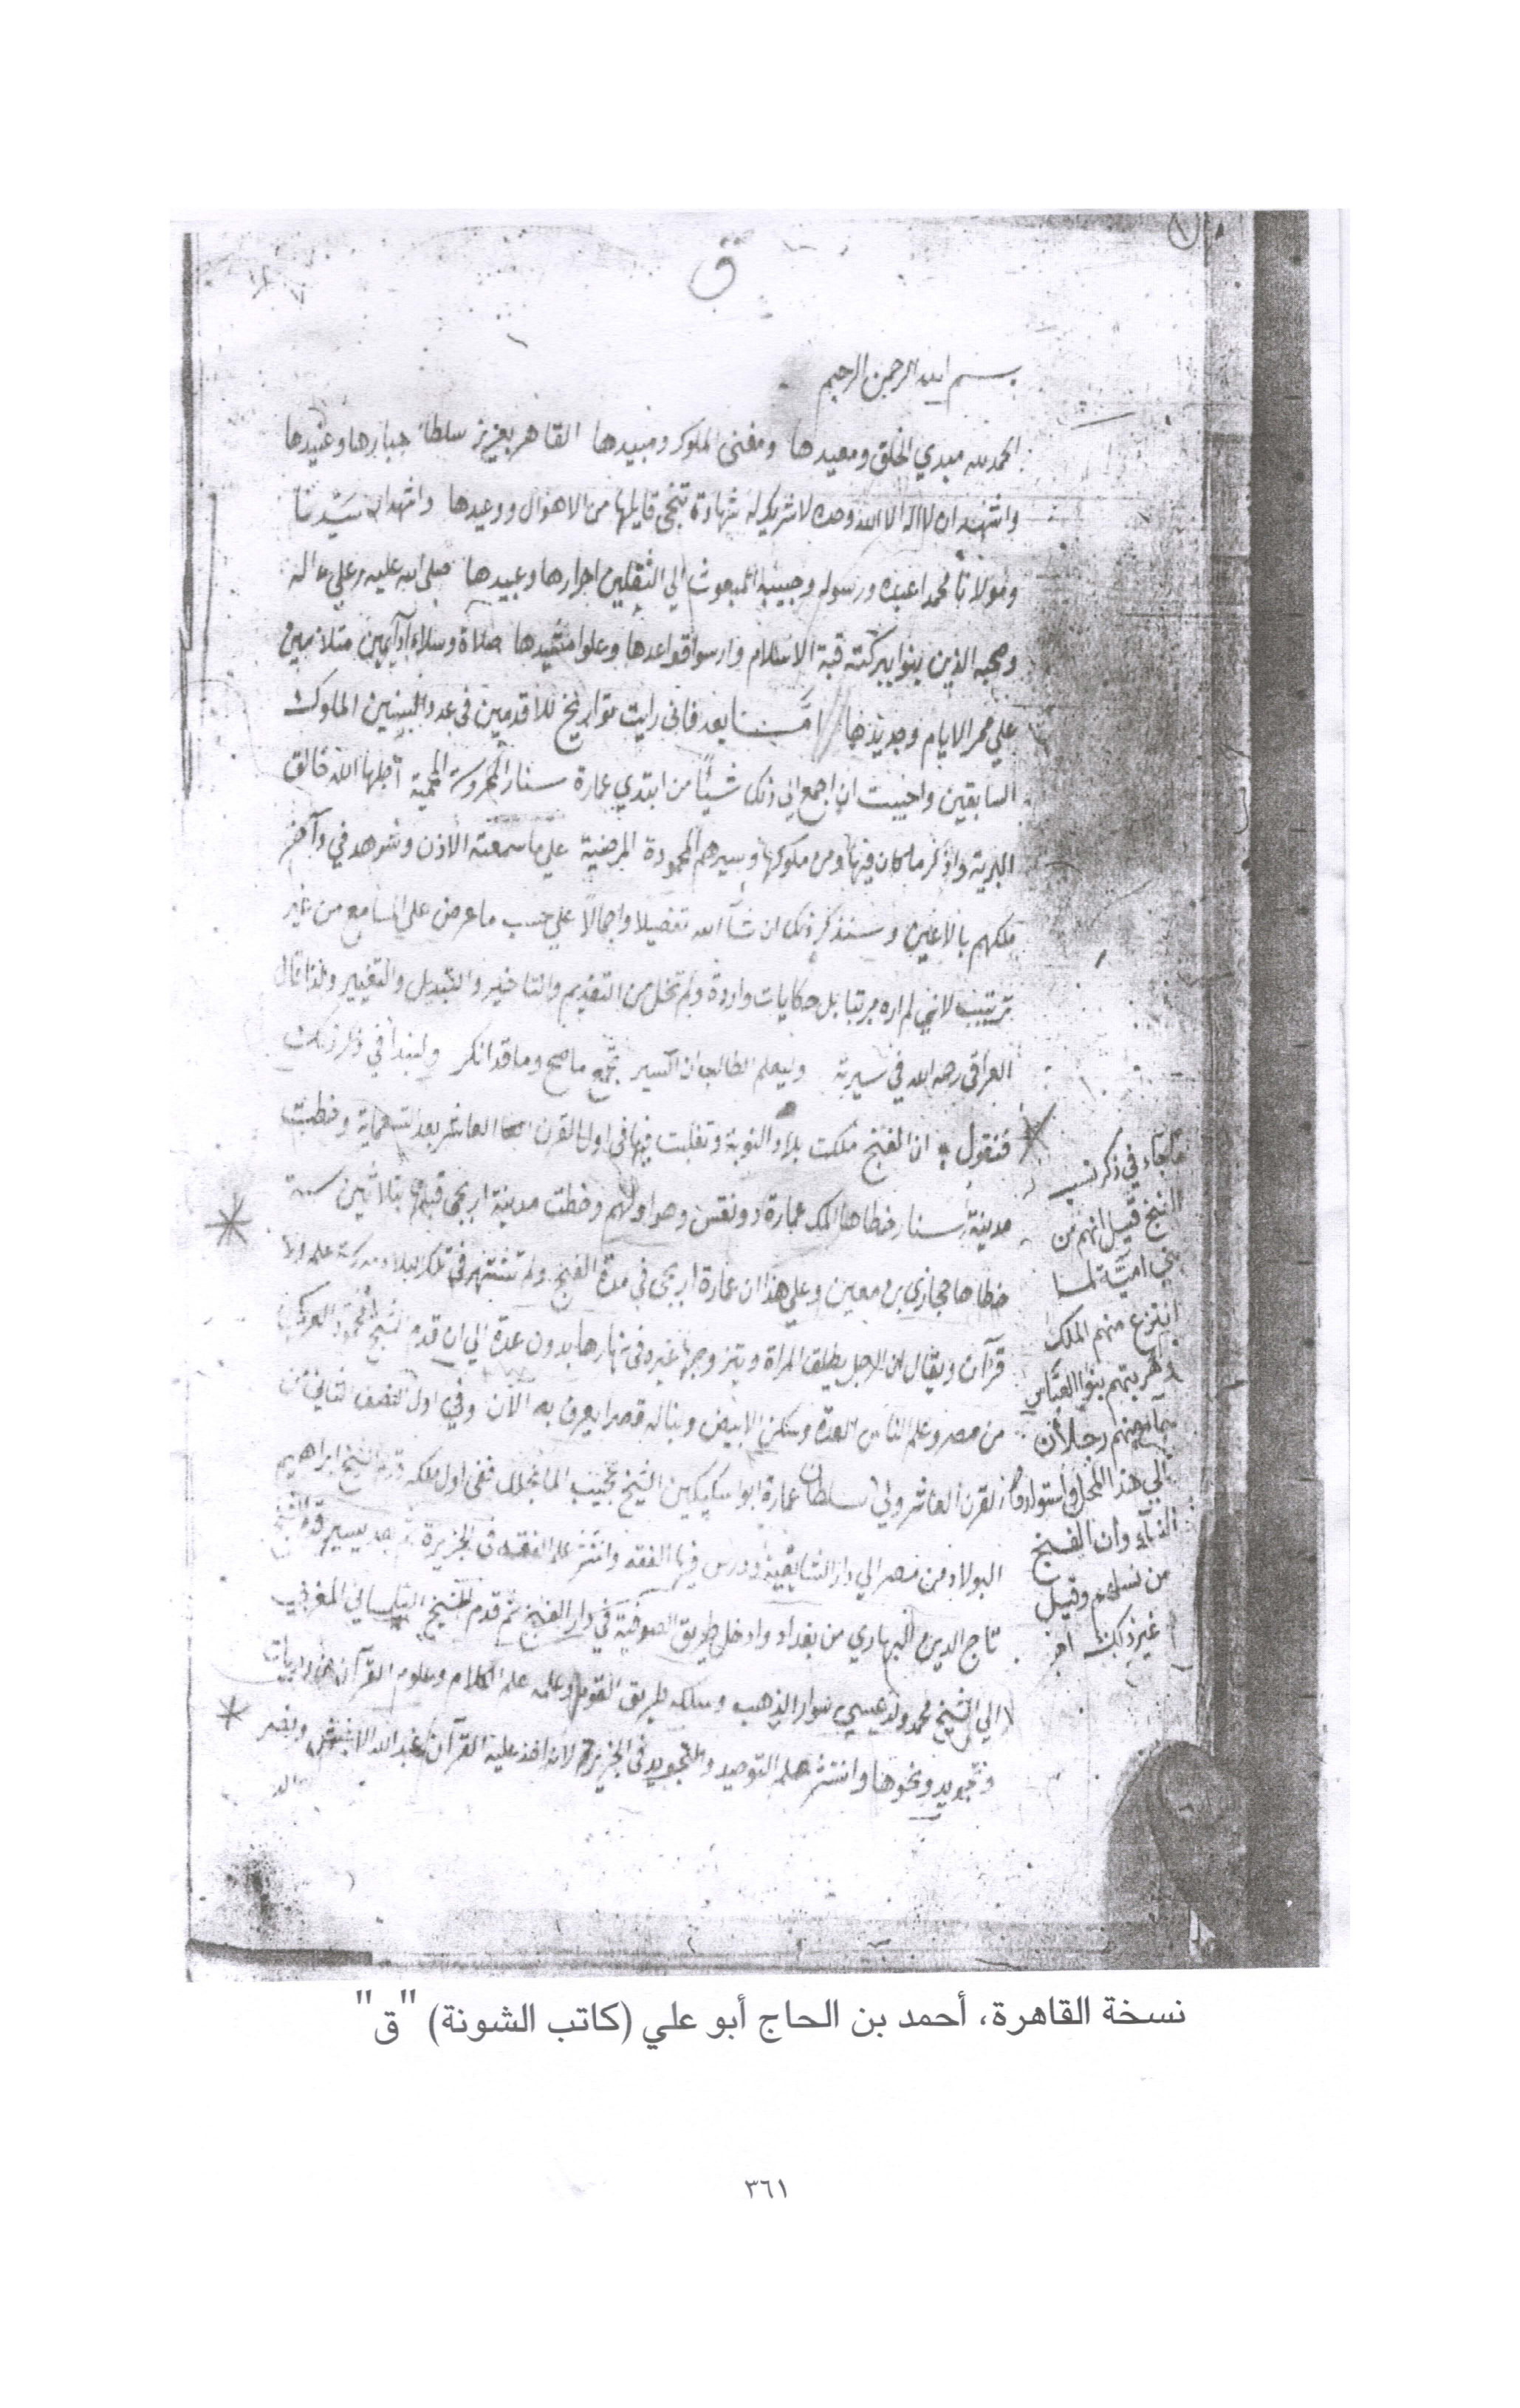 ق
بسم الله الرحمن الرحيم
الحمد لله مبدي الخلق ومعيدها ومفنى الملوك ومبيدها القاهر بعزيز سلطانه جبارها وعنيدها
واشهد ان لا اله الا الله وحده لا شريك له شهادة تنجى قايلها من الاهوال ووعيدها واشهد ان سيدنا
ومولانا محمدا عبده ورسوله وحبيبه المبعوث الي الثقلين احرارها وعبيدها صلى الله عليه وعلي اله
وصحبه الذين بنوا ببركته قبة الاسلام وارسوا قواعدها وعلوا مشيدها صلاة وسلاما دآيمين متلازمين
علي ممر الايام وجديدها امّا بعد فانى رايت تواريخ للاقدمين في عدد السنين الملوك
السابقين واحببت ان اجمع الي ذلك شيئاً من ابتدي عمارة سنار المحروسة المحمية اجلها الله خالق
البرية واذكر ما كان فيها ومن ملوكها وسيرهم المحمودة المرضية علي ما سمعته الاذن وشوهد في وآخر
ملكهم بالاعين وسنذكر ذلك ان شآ الله تفصيلا واجمالاً علي حسب ما عرض علي المسامع من غير
ترتيب لاني لم اره مرتبا بل حكايات واردة ولم تخل من التقديم والتاخير والتبديل والتغيير ولذا قال
العراقي رحمه الله في سيرته وليعلم الطالب ان السير تجمع ما صح وما قد انكر ولنبدأ في ذكر ذلك
فنقول ان الفنج ملكت بلاد النوبة وتغلبت فيها في اول القرن العاشر بعد التسعماية وخطت
مدينة سنار خطاها الملك عمارة دونقس وهو اولهم وخطت مدينة اربجى قبلها بثلاثين سنة
خطاها حجازي بن معين وعلي هذا ان عمارة اربجى في مدة الفنج ولم تشتهر في تلك البلاد مدرسة علم ولا
قرآن ويقال ان الرجل يطلق المراة ويتزوجها غيره في نهارها بدون عدة الي ان قدم الشيخ محمود العركي
من مصر وعلم الناس العدة وسكن الابيض وبنا له قصرا يعرف به الان وفي اول النصف الثاني من
القرن العاشر ولي السلطان عمارة ابو سكيكين الشيخ عجيب المانجلك ففى اول ملكه قدم الشيخ ابراهيم
البولاد من مصر الي دار الشايقية ودرس فيها الفقه وانتشر علم الفقه في الجزيرة ثم بعد يسير قدم الشيخ
تاج الدين البهاري من بغداد وادخل طريق الصوفية في دار الفنج ثم قدم الشيخ التلمساني المغربي
الي الشيخ محمد ولد عيسي سوار الذهب وسلكه طريق القوم وعلمه علم الكلام وعلوم القرآن من روايات
وتجويد ونحوها وانتشر علم التوحيد والتجويد في الجزيرة لانه اخذ عليه القرآن عبد الله الاغبش ونصر
ما جاء في ذكر نسب
الفنج قيل انهم من
بني اميّة لما
انتزع منهم الملك
وظهر بتهم بنوا العباس
منهم رجلان
الي هذا المحل واستولدوا
النساء وان الفنج
من نسلهم وقيل
غير ذلك اهـ
نسخة القاهرة، أحمد بن الحاج أبو علي (كاتب الشونة) "ق"
٣٦١